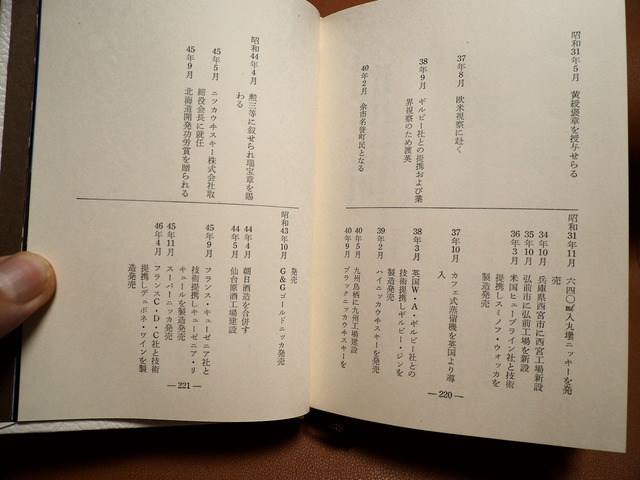 昭和31年5月　黄綬褒章を授与せらる
37年8月　欧米視察に赴く
38年9月　ギルビー社との提携および業
界視察のため渡英
40年2月　余市名誉町民となる
昭和31年11月　六四〇㎖入丸壜ニッキーを発
売
34年10月　兵庫県西宮市に西宮工場新設
35年10月　弘前市に弘前工場を新設
36年3月　米国ヒューブライン社と技術
提携しスミノフ・ウォッカを
製造発売
37年10月　カフェ式蒸留機を英国より導
入
38年3月　英国W・A・ギルビー社との
技術提携しギルビー・ジンを
製造発売
39年2月　ハイニッカウヰスキーを発売
40年5月　九州鳥栖に九州工場建設
40年9月　ブラックニッカウヰスキーを
—220—
昭和44年4月　勲三等に叙せられ瑞宝章を賜
わる
45年5月　ニッカウヰスキー株式会社取
締役会長に就任
45年9月　北海道開発功労賞を贈られる
発売
昭和43年10月　G&Gゴールドニッカ発売
44年4月　朝日酒造を合併す
44年5月　仙台原酒工場建設
45年9月　フランス・キューゼニア社と
技術提携しキューゼニア・リ
キュールを製造発売
45年11月　スーパーニッカ発売
46年4月　フランスC・D・C社と技術
提携しデュボネ・ワインを製
造発売
—221—